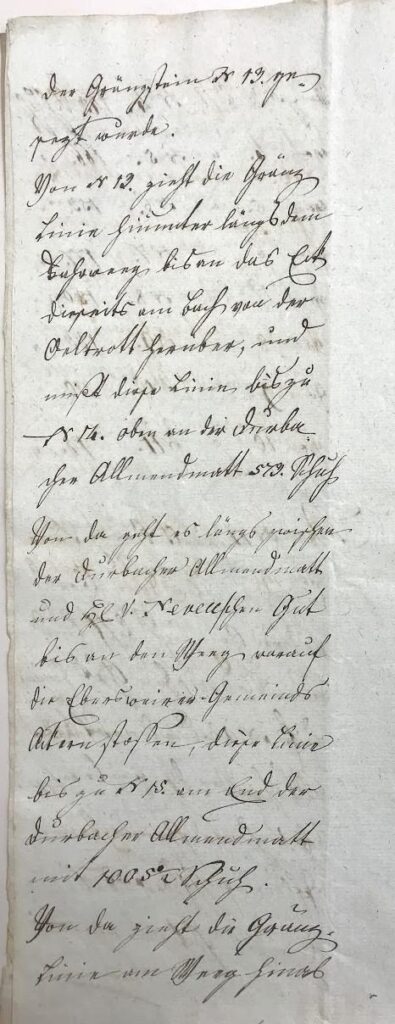 der Gränzstein N 13. ge-
sezt wurde.
Von N 13. zieht die Gränz
Linie hinunter längs dem
bis an das Eck
dieseits am Bach von der
Oeltrott herüber, und
mißt diese Linie bis zu
N 14. oben an der Durba
cher Allmendmatt 573. Schuh
Von da geht es längs zwischen
der Durbacher Allmendmatt
und H v. Neveuschen Gut
bis an den Weeg worauf
die Ebersweierer Gemeinds
Ackern stossen, diese Linie
bis zu N 15. am End der
Durbacher Allmendmatt
mit 1005 Schuh.
Von da zieht die Gränz-
Linie am Weeg